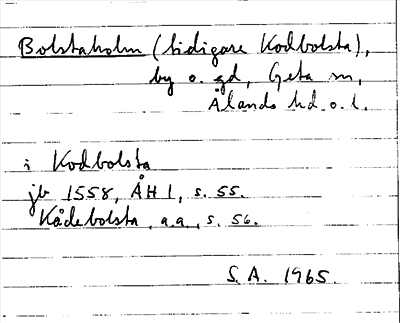 Bolstaholm (tidigare Kodbolsta),
by o. gd, Geta sn,
Ålands hd o. l.
i Kodbolsta
jb 1558, ÅH 1, s. 55.
Kådebolsta, a.a., s. 56.
S.A. 1965.